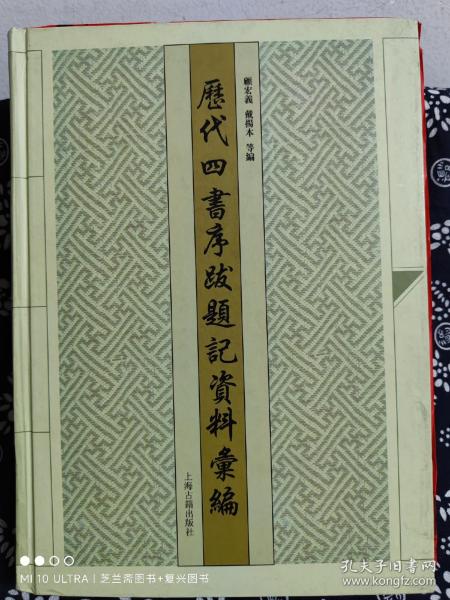 顧宏義 戴揚本 等編
歷代四書序跋題記資料彙編
上海古籍出版社
MI 10 ULTRA | 芝兰斋图书+复兴图书
孔夫子旧书网